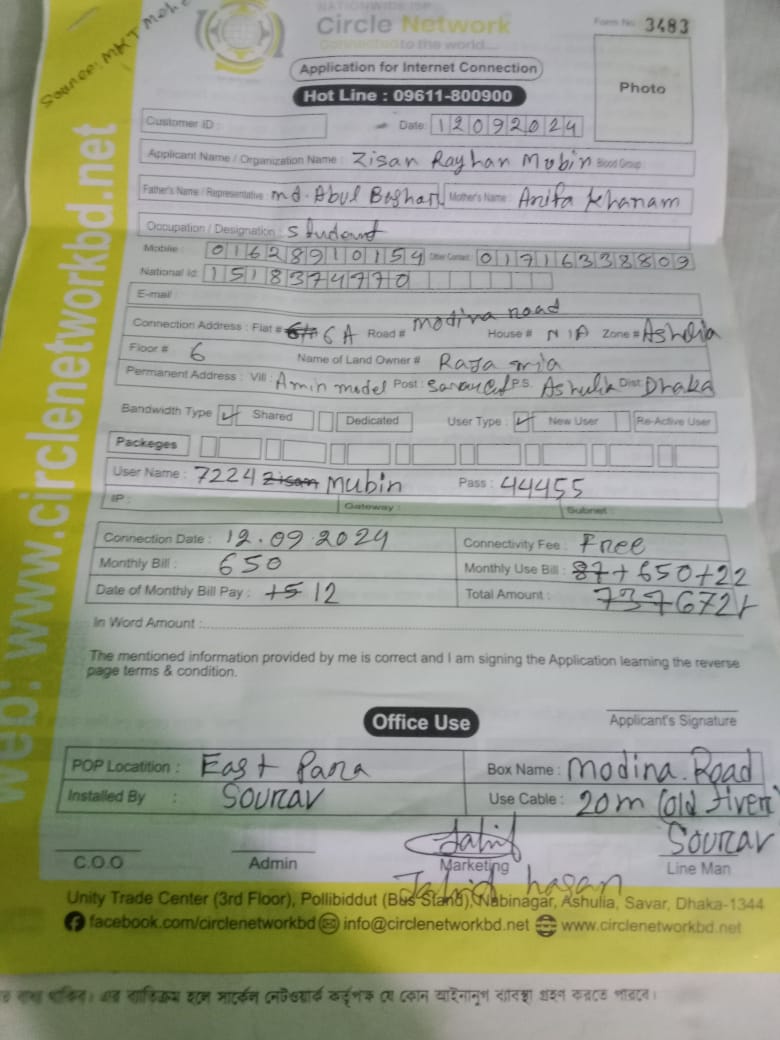 NATIONWIDE ISP
Circle Network
Connected to the world....
Form No: 3483
Source: MKT
Application for Internet Connection
Hot Line : 09611-800900
Photo
Customer ID :
Date: 12092024
Applicant Name / Organization Name : Zisan Rayhan Mubin Blood Group :
Father's Name / Representative Md. Abul Bashar Mother's Name : Anifa Khanam
Occupation / Designation : Student
Mobile : 01628910154 Other Contact : 01716338809
National Id: 1518374770
E-mail :
Connection Address : Flat # 6A Road # Modina Road House # N/A Zone # Ashulia
Floor # 6 Name of Land Owner # Raja mia
Permanent Address : Vill : Amin model Post : P.S. Ashulia Dist: Dhaka
Bandwidth Type ✓ Shared Dedicated User Type : ✓ New User Re-Active User
Packeges
User Name : 7224 Zisan Mubin Pass : 44455
IP : Gateway : Subnet :
Connection Date : 12.09.2024 Connectivity Fee : Free
Monthly Bill : 650 Monthly Use Bill : 87+650+22
Date of Monthly Bill Pay : +5 12 Total Amount : 737672/-
In Word Amount :
The mentioned information provided by me is correct and I am signing the Application learning the reverse
page terms & condition.
Applicant's Signature
Office Use
POP Locatition : East Para Box Name : Modina Road
Installed By : Sourav Use Cable : 20m (old fiver)
Sourav
C.O.O Admin Marketing Line Man
hasan
Unity Trade Center (3rd Floor), Pollibiddut (Bus Stand), Nabinagar, Ashulia, Savar, Dhaka-1344
facebook.com/circlenetworkbd info@circlenetworkbd.net www.circlenetworkbd.net
web: www.circlenetworkbd.net
বাধ্য থাকিব। এর ব্যতিক্রম হলে সার্কেল নেটওয়ার্ক কর্তৃপক্ষ যে কোন আইনানুগ ব্যবস্থা গ্রহণ করতে পারবে।